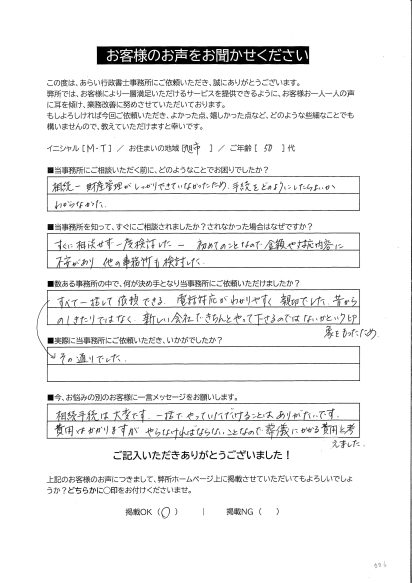 お客様のお声をお聞かせください
この度は、あらい行政書士事務所にご依頼いただき、誠にありがとうございます。
弊所では、お客様により一層満足いただけるサービスを提供できるように、お客様お一人一人の声
に耳を傾け、業務改善に努めさせていただいております。
もしよろしければ今回ご依頼いただき、よかった点、嬉しかった点など、どのような些細なことでも
構いませんので、教えていただけますと幸いです。
イニシャル [ M・T ] / お住まいの地域 [ 市 ] / ご年齢 [ 50 ] 代
■当事務所にご相談いただく前に、どのようなことでお困りでしたか?
相続一財産管理がしっかりできていなかったため、手続をどのようにしたらよいか
わからなかった。
■当事務所を知って、すぐにご相談されましたか?されなかった場合はなぜですか?
すぐに相談せず一度検討した ー 初めてのことなので金額や対応内容に
不安があり 他の事務所も検討した。
■数ある事務所の中で、何が決め手となり当事務所にご依頼いただけましたか?
すべて一括して依頼できる。電話対応がわかりやすく 親切でした。昔から
のしきたりではなく、新しい会社できちんとやって下さるのではないかという印
象をもったため
■実際に当事務所にご依頼いただき、いかがでしたか?
その通りでした。
■今、お悩みの別のお客様に一言メッセージをお願いします。
相続手続は大変です。一括でやっていただけることはありがたいです。
費用はかかりますが やらなければならないことなので、葬儀にかかる費用と考
えました。
ご記入いただきありがとうございました!
上記のお客様のお声につきまして、弊所ホームページ上に掲載させていただいてもよろしいでしょ
うか?どちらかに○印をお付けくださいませ。
掲載OK ( ○ ) | 掲載NG ( )